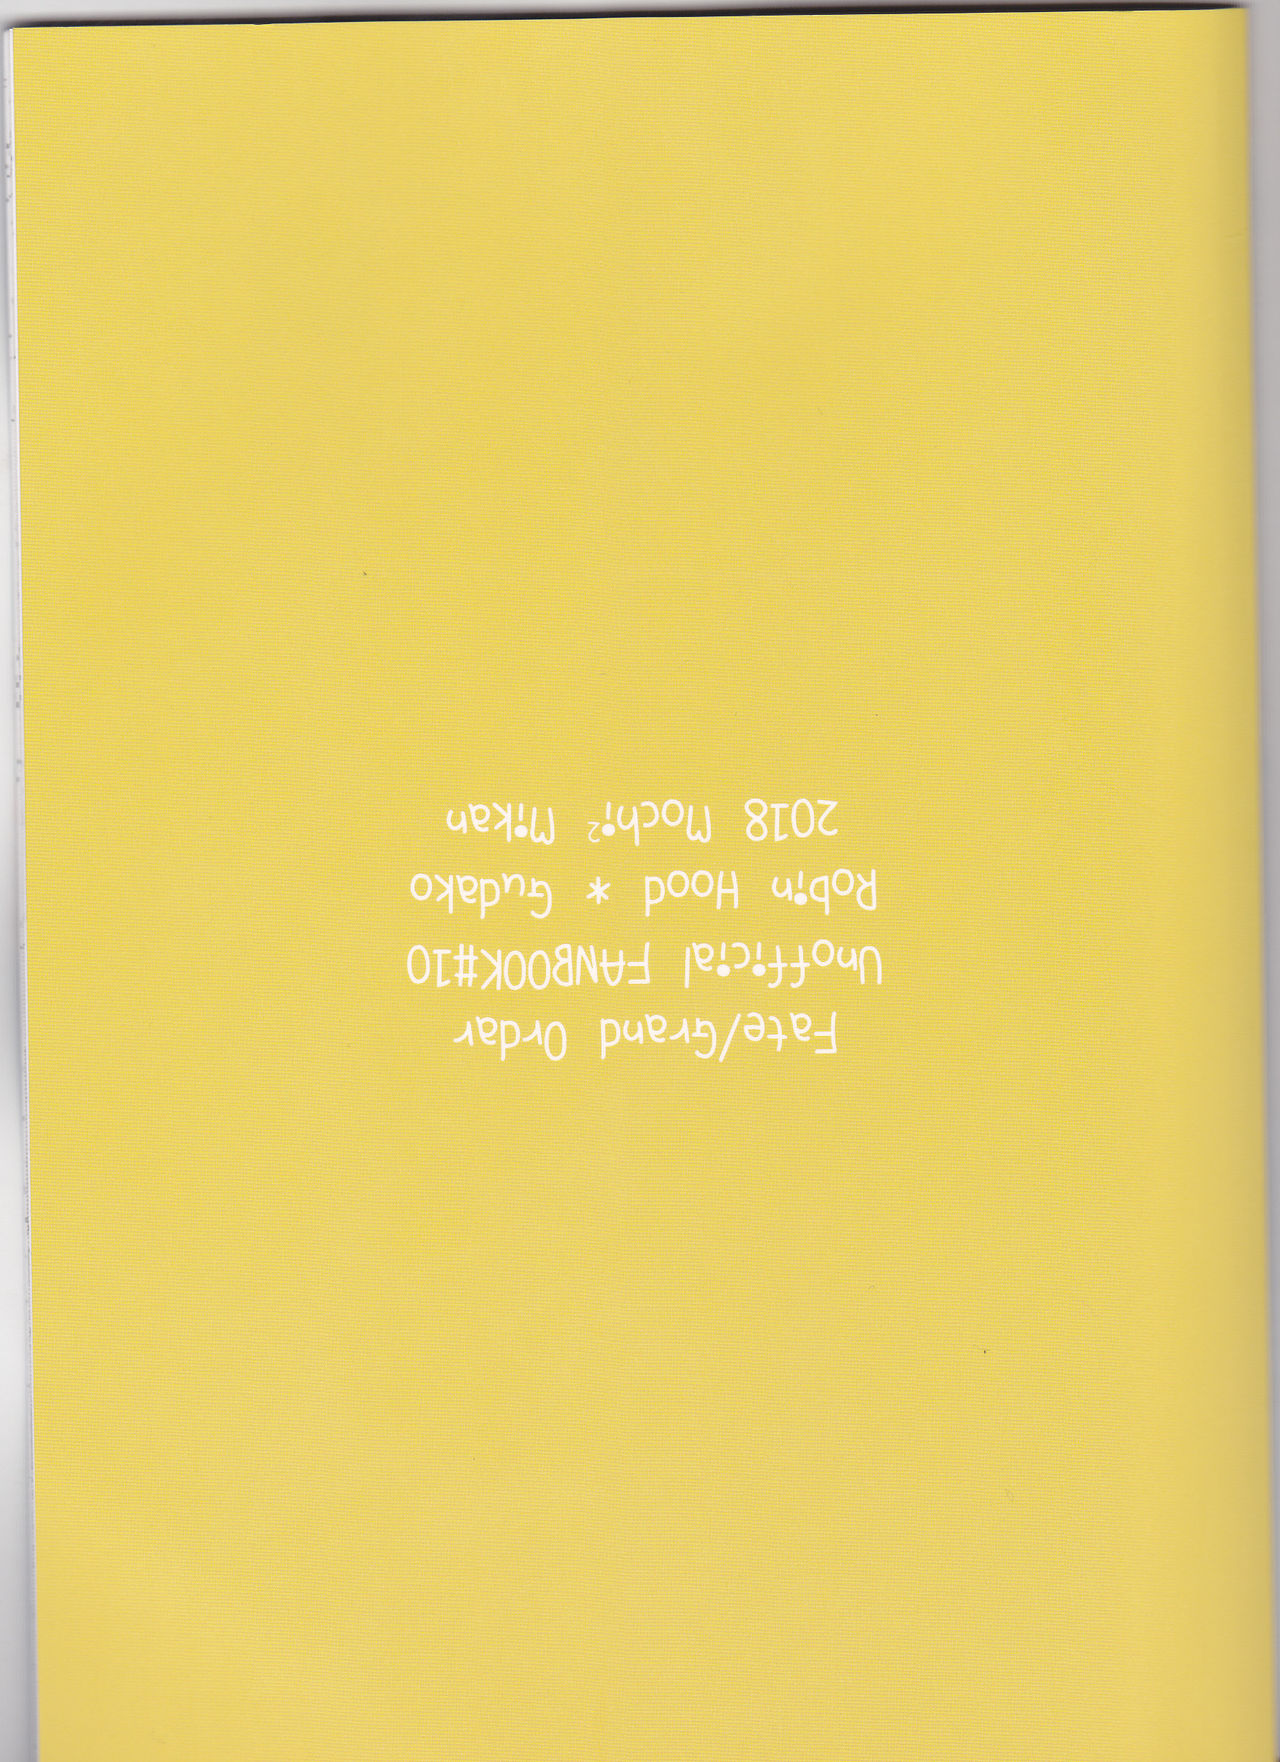 Fate/Grand Ordar
Unofficial FANBOOK#10
Robin Hood * Gudako
2018 Mochi² Mikan